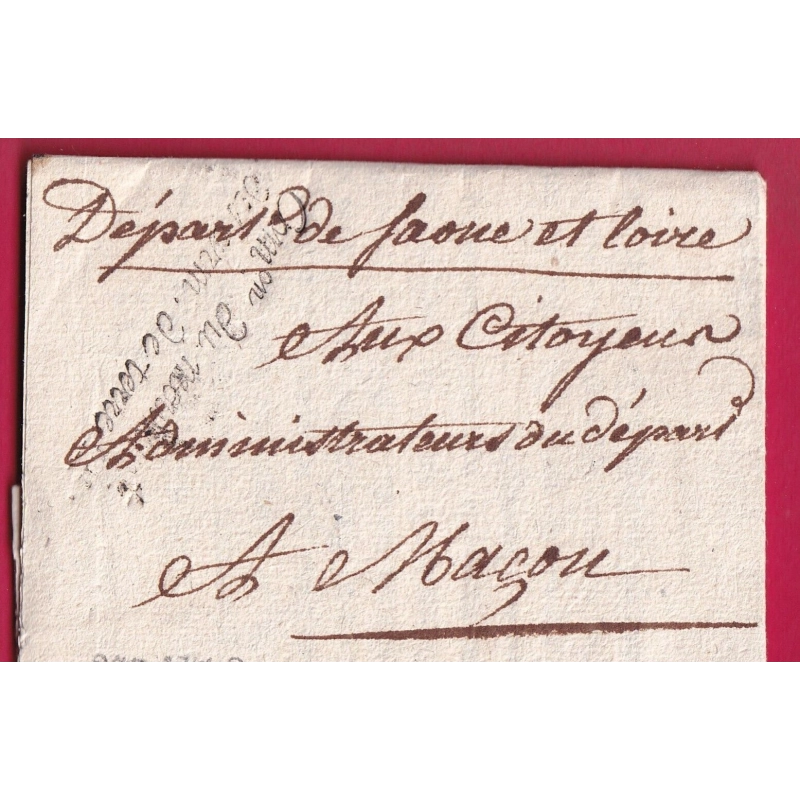 Départ. de saone et loire
Aux Citoyens
Administrateurs du départ
A Macon
Com on du
de terre